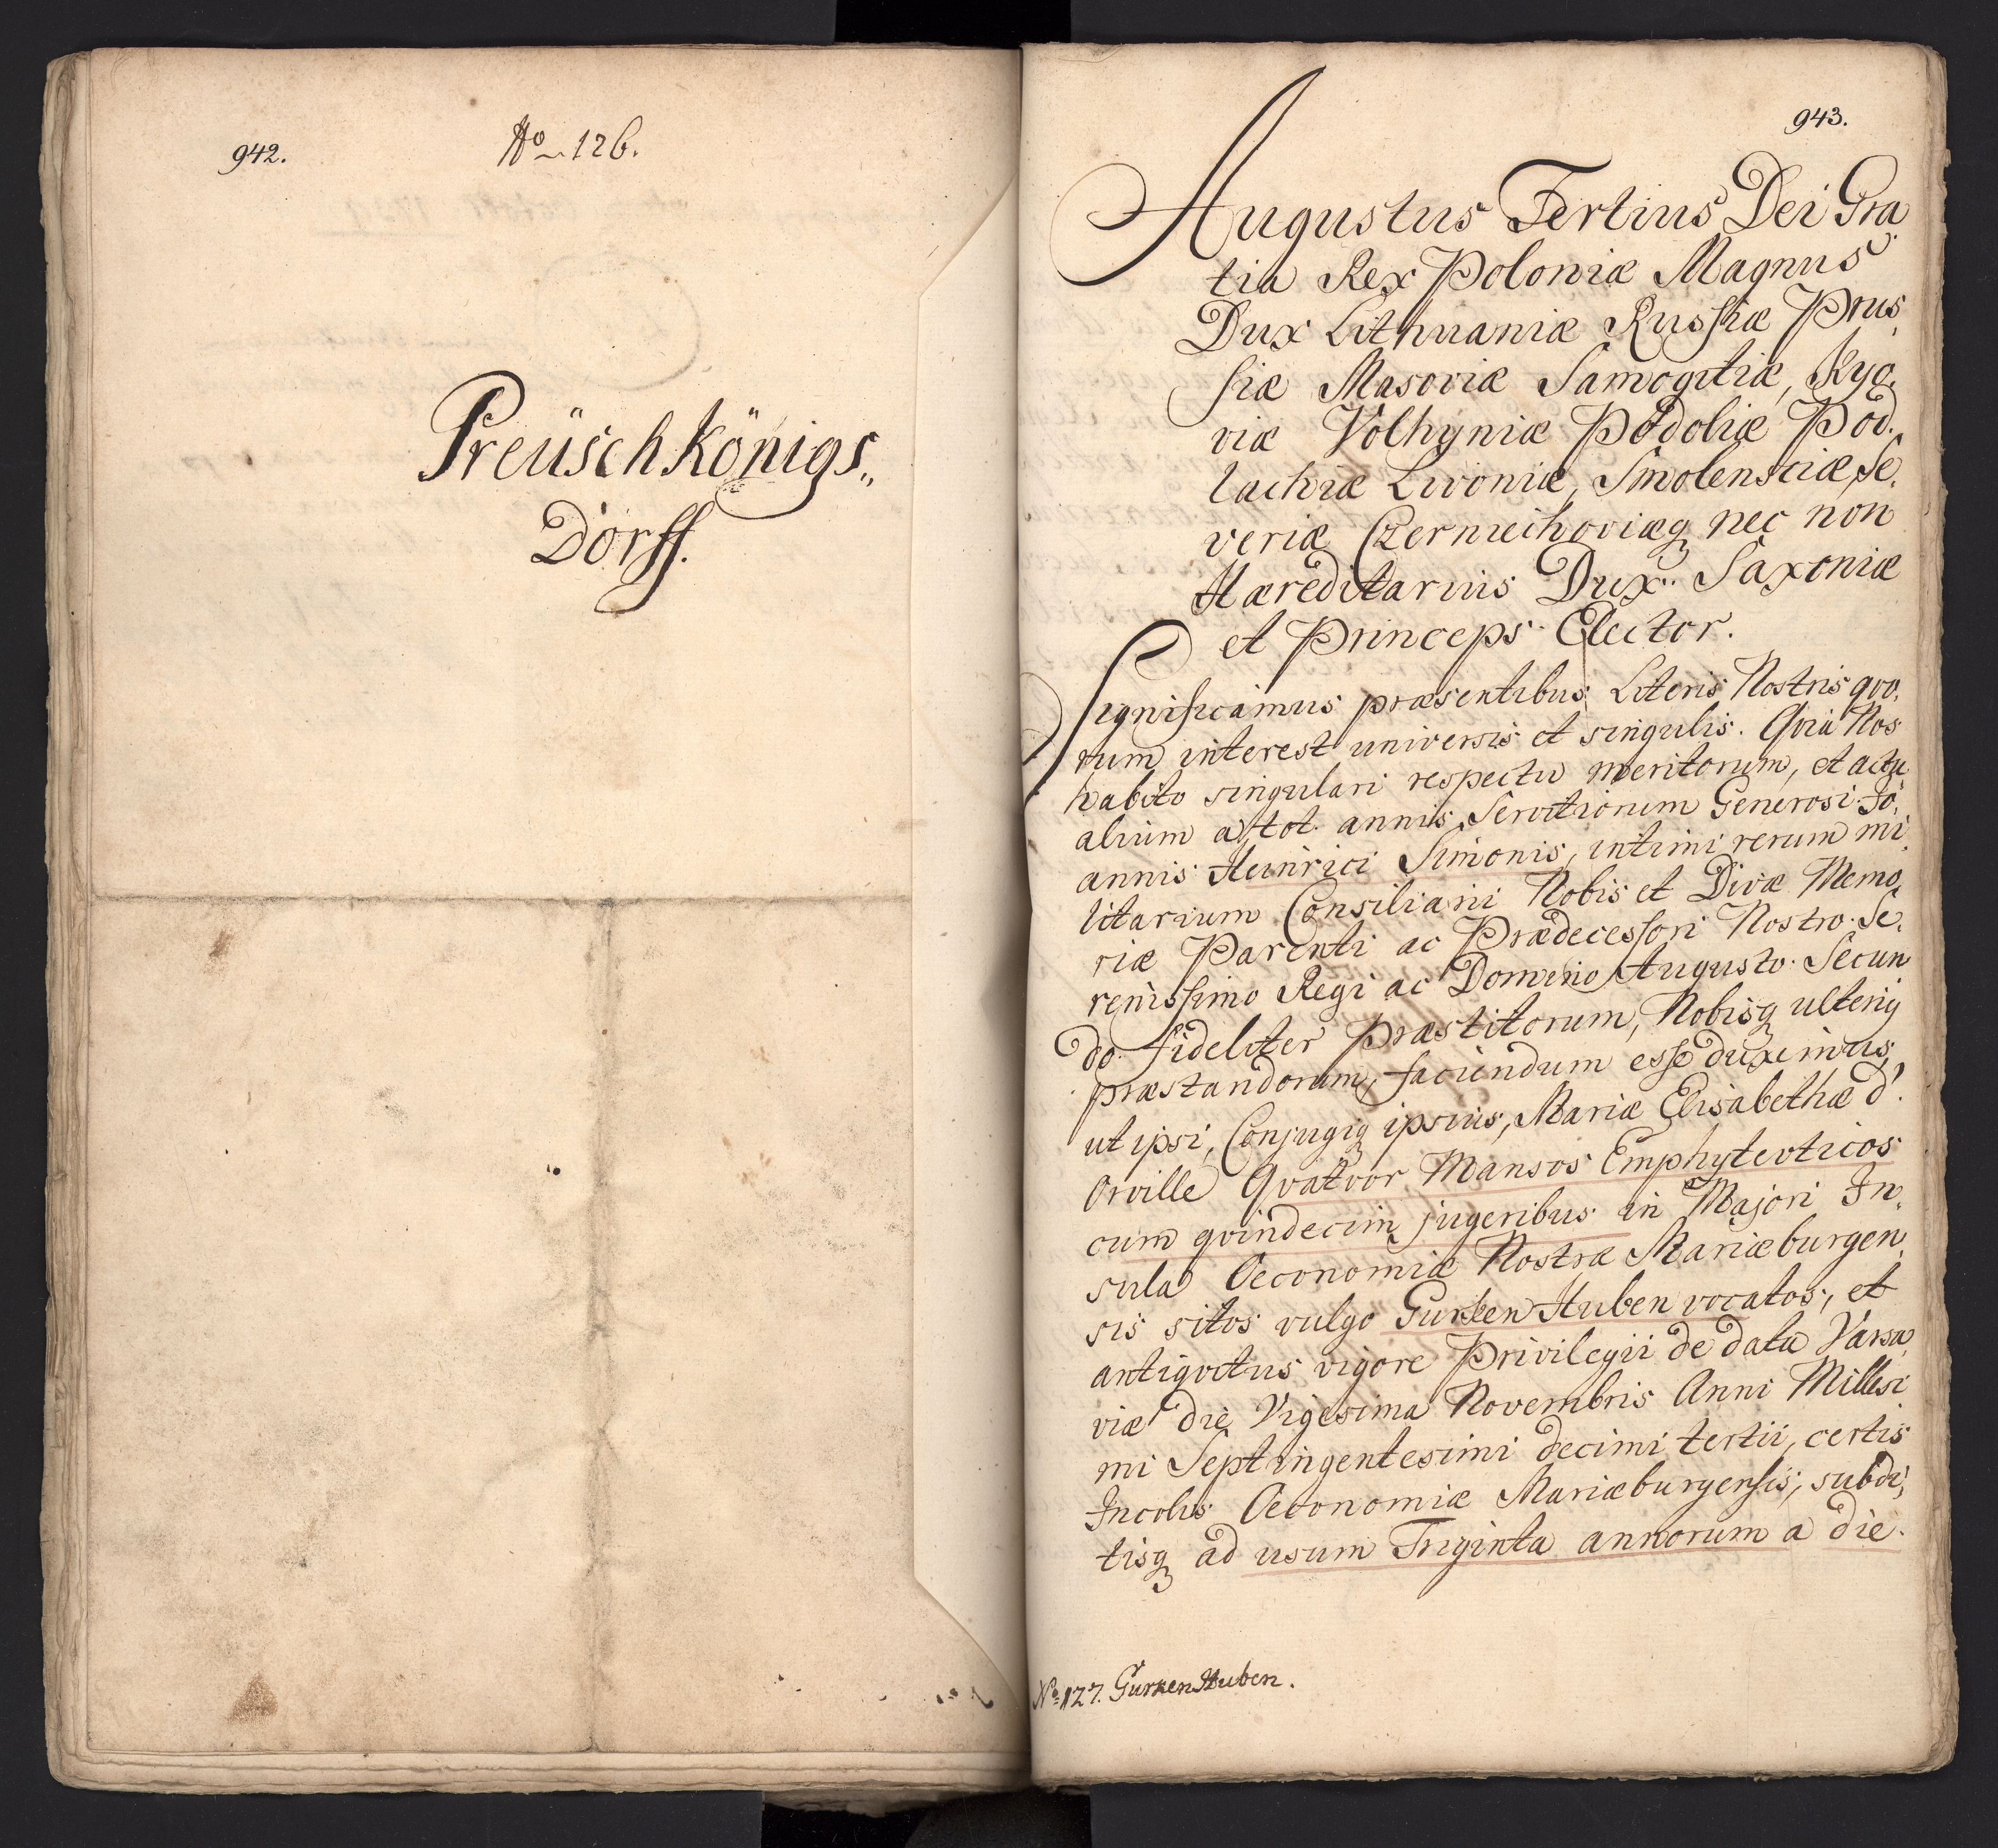 942.
No 126.
Preüsch Königs„
Dorff.
943.
Augustus Tertius Dei Gra
tia Rex Poloniæ Magnus
Dux Lithuaniæ Russiæ Prus
siæ Masoviæ Samogitiæ, Kyo.
viæ Volhyniæ Podoliæ Pod.
lachiæ Livoniæ, Smolensciæ Se.
veriæ Czerniechoviæq nec non
Hæreditarius Dux Saxoniæ
et Princeps Elector.
Significamus præsentibus Literis Nostris qvo.
rum interest universis et singulis. Qvia Nos
habito singulari respectu meritorum, et actu
alium a tot annis Servitiorum Generosi Jo.
annis Heinrici Simonis, intimi rerum mi
litarium Consiliarii Nobis et Divæ Memo
riæ Parenti ac Prædecessori Nostro Se.
renissimo Regi ac Domino Augusto Secun
do fideliter Præstitorum, Nobisq ulteriq
præstandorum, faciendum esse duximus,
ut ipsi, Conjugiq ipsius, Mariæ Elisabethæ d'
Orville Qvatvor Mansos Emphytevticos
cum qvindecim jugeribus in Majori In.
sula Oeconomiæ Nostræ Mariæburgen.
sis sitos vulgo Gurken Huben vocatos, et
antiqvitus vigore Privilegii de data Varsa
viæ die Vigesima Novembris Anni Millesi
mi Septingentesimi decimi tertii, certis
Incolis Oeconomiæ Mariæburgensis, subdi,
tisq ad usum Triginta annorum a die
No 127. Gurken Huben.